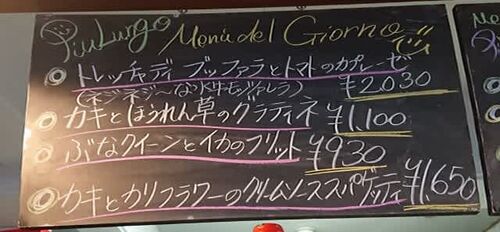 PiuLungo Menú del Giorno
トレッチャ ディ ブッファラとトマトのカプレーゼ
(ネジネジ〜な水牛モッツァレラ) ¥2030
カキとほうれん草のグラティネ ¥1,100
ぶなクイーンとイカのフリット ¥930
カキとカリフラワーのクリームソーススパゲッティ ¥1,650